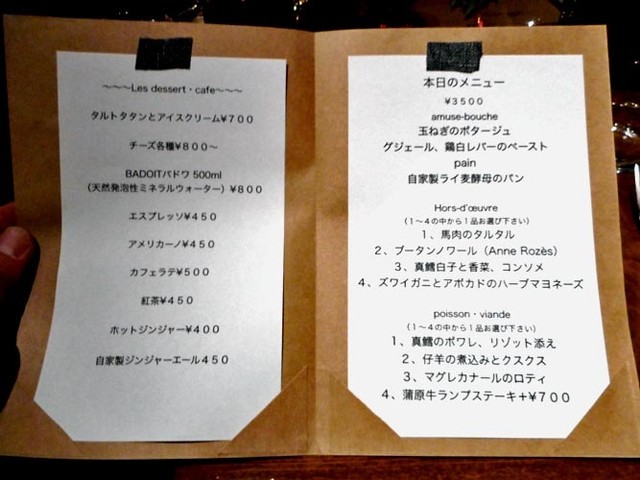 ～～～Les dessert・cafe～～～
タルトタタンとアイスクリーム¥７００
チーズ各種¥８００～
BADOITバドワ 500ml
（天然発泡性ミネラルウォーター）¥８００
エスプレッソ¥４５０
アメリカーノ¥４５０
カフェラテ¥５００
紅茶¥４５０
ホットジンジャー¥４００
自家製ジンジャーエール４５０
本日のメニュー
¥３５００
amuse-bouche
玉ねぎのポタージュ
グジェール、鶏白レバーのペースト
pain
自家製ライ麦酵母のパン
Hors-d'œuvre
（１～４の中から１品お選び下さい）
１、馬肉のタルタル
２、ブータンノワール（Anne Rozès）
３、真鱈白子と香菜、コンソメ
４、ズワイガニとアボカドのハーブマヨネーズ
poisson・viande
（１～４の中から１品お選び下さい）
１、真鱈のポワレ、リゾット添え
２、仔羊の煮込みとクスクス
３、マグレカナールのロティ
４、蒲原牛ランプステーキ+¥７００